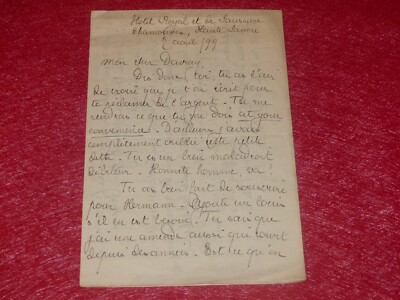 Hotel Royal et de Saussure
Chamounix, Haute Savoie
6 août /99
Mon cher Davray,
Dis donc, toi, tu as l'air
de croire que je t'ai écrit pour
te réclamer de l'argent. Tu me
rendras ce que tu me dois at your
convenience. D'ailleurs j'avais
complètement oublié cette petite
dette. Tu es un bien maladroit
débiteur. Honnête homme, va!
Tu as bien fait de souscrire
pour Hermann. Ajoute un louis
s'il en est besoin. Tu sais que
j'ai une amende aussi qui court
depuis des années. Est-ce qu'on